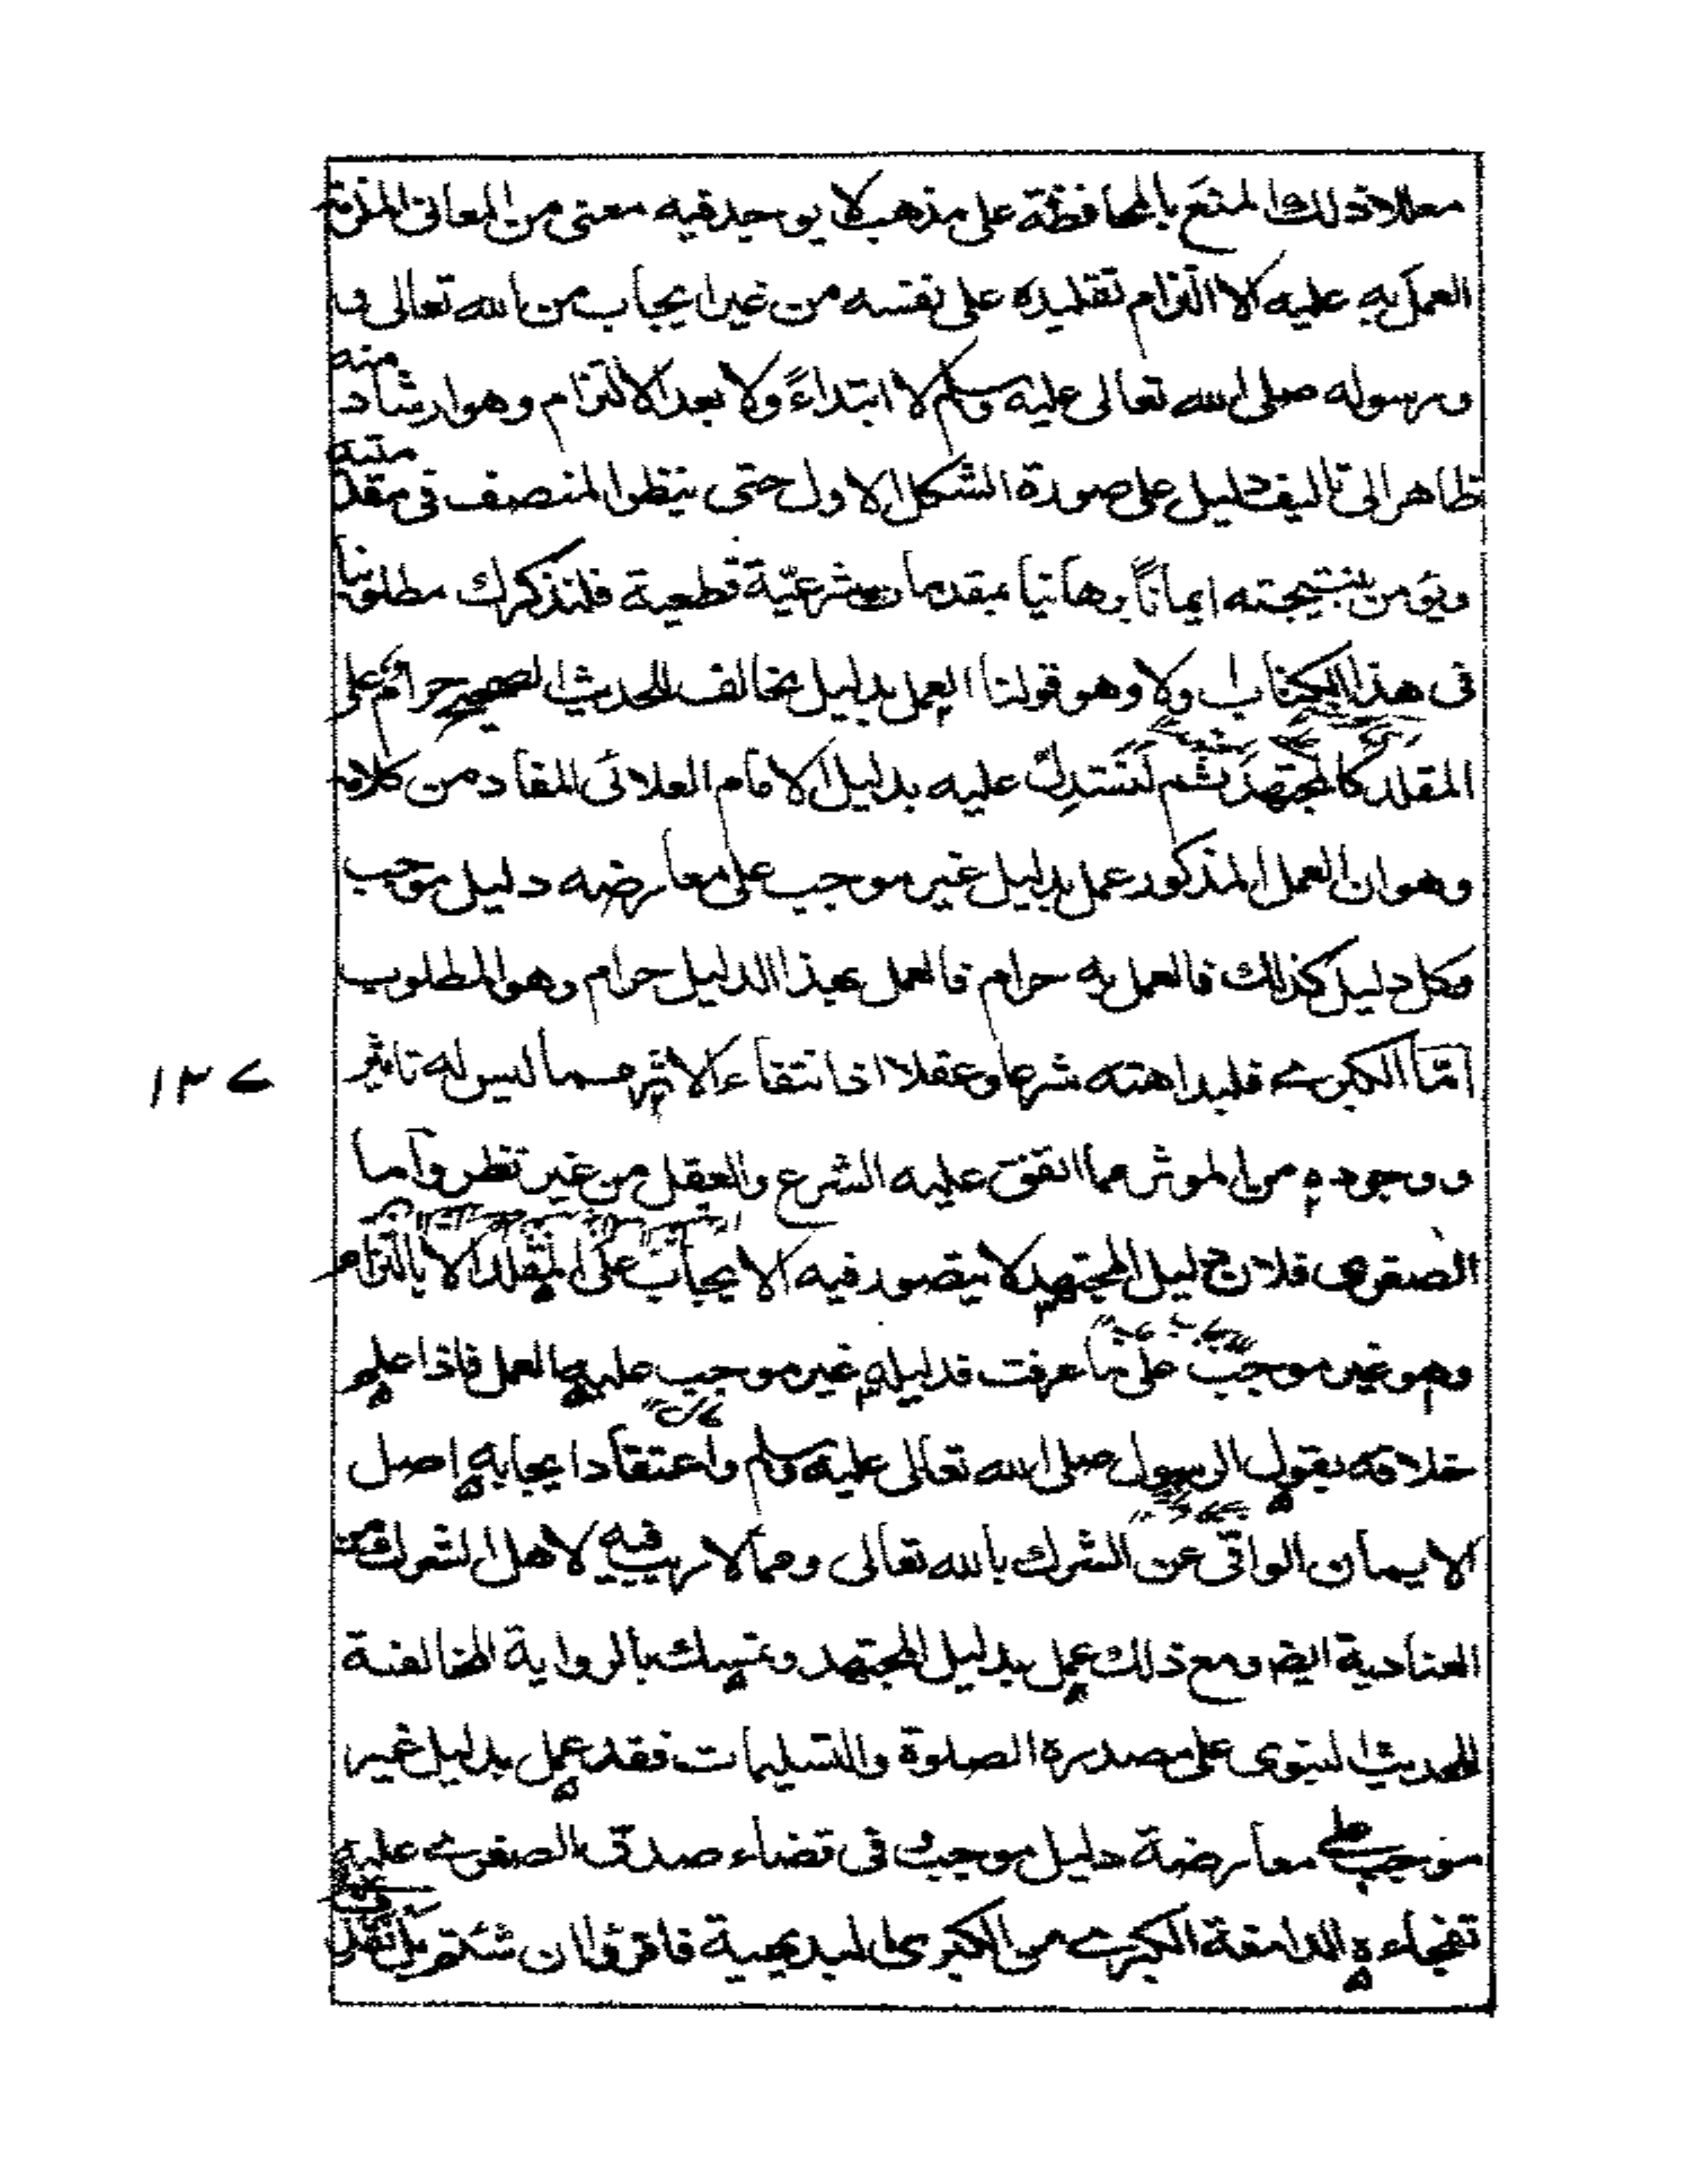 معللا ذلك المنع بالمحافظة على مذهب لا يوجد فيه معنى من المعانى
العمل به عليه الا التزام تقليده على نفسه من غير ايجاب من الله تعالى و
ورسوله صلى الله تعالى عليه وسلم لا ابتداءً ولا بعد الالتزام وهو ارشاد منه
ظاهر الى تاليف دليل على صورة الشكل الاول حتى ينظر المنصف فى
ويؤمن بنتيجته ايماناً برهانيا بمقدمات شرعيّة قطعية فلنذكرك مطلوبنا
فى هذا الكتاب اولا وهو قولنا العمل بدليل يخالف الحديث الصحيح حرام على
المقلد كالمجتهد ثم لنستدل عليه بدليل الامام العلائى المفاد من كلامه
وهو ان العمل المذكور عمل بدليل غير موجب على معارضه دليل موجب
وكل دليل كذلك فالعمل به حرام فالعمل بهذا الدليل حرام وهو المطلوب
امّا الكبرے فلبداهته شرعا وعقلا اذ انتفاء الاثر مما ليس له تاثير
ووجوده من الموثر مما اتفق عليه الشرع والعقل من غير نظر واما
الصغرى فلان دليل المجتهد لا يتصور فيه الايجاب على المقلد الا بالتزام
وهو غير موجب على ما عرفت فدليله غير موجب عليه العمل فاذا علم
خلافه بقول الرسول صلى الله تعالى عليه وسلم واعتقاد ايجابه اصل
الايمان الواقى عن الشرك بالله تعالى ومما لا ريب فيه لاهل الشرك
العنادية ايضا ومع ذلك عمل بدليل المجتهد وتمسك بالرواية المخالفة
للحديث النبوى على مصدره الصلوة والتسليمات فقد عمل بدليل غير
موجب على معارضة دليل موجب فى قضاء صدق الصغرے عليه
الدامغة الكبرے من الكبرى البديهية ان شئتم
١٣٧